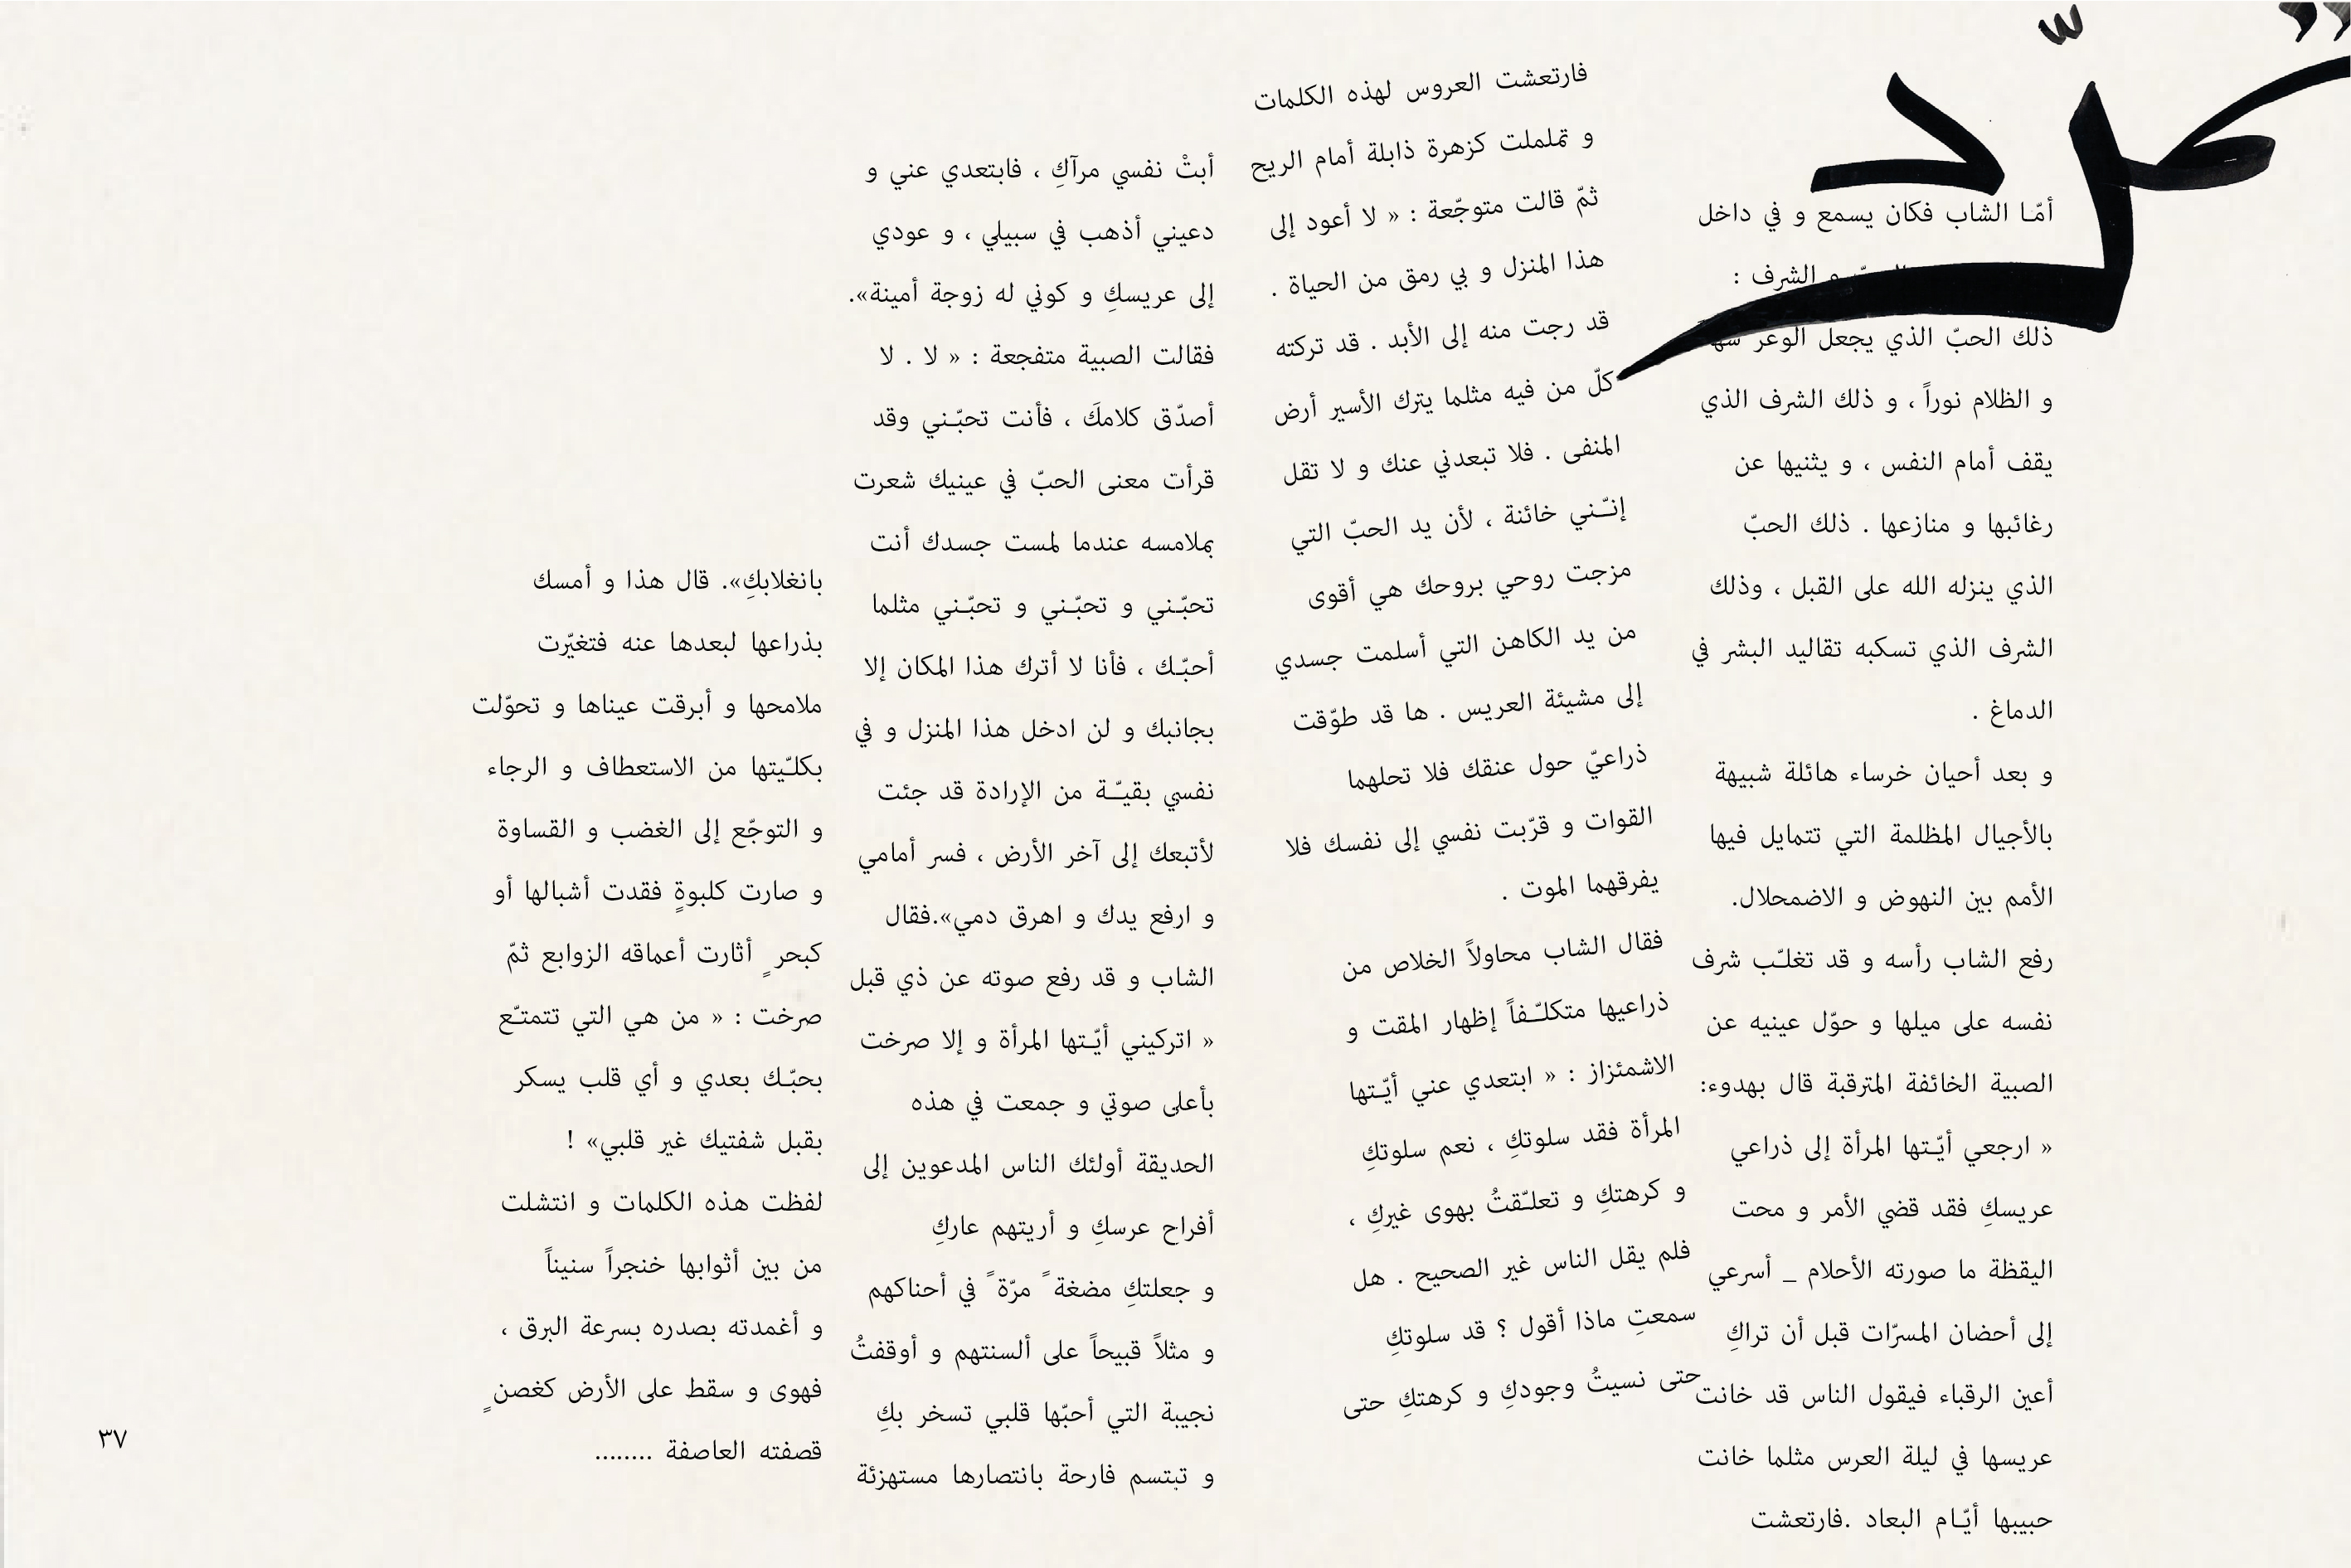 أمّا الشاب فكان يسمع و في داخل
و الشرف :
ذلك الحبّ الذي يجعل الوعر
و الظلام نوراً ، و ذلك الشرف الذي
يقف أمام النفس ، و يثنيها عن
رغائبها و منازعها . ذلك الحبّ
الذي ينزله الله على القبل ، وذلك
الشرف الذي تسكبه تقاليد البشر في
الدماغ .
و بعد أحيان خرساء هائلة شبيهة
بالأجيال المظلمة التي تتمايل فيها
الأمم بين النهوض و الاضمحلال.
رفع الشاب رأسه و قد تغلّب شرف
نفسه على ميلها و حوّل عينيه عن
الصبية الخائفة المترقبة قال بهدوء:
« ارجعي أيّتها المرأة إلى ذراعي
عريسكِ فقد قضي الأمر و محت
اليقظة ما صورته الأحلام _ أسرعي
إلى أحضان المسرّات قبل أن تراكِ
أعين الرقباء فيقول الناس قد خانت
عريسها في ليلة العرس مثلما خانت
حبيبها أيّام البعاد .فارتعشت
فارتعشت العروس لهذه الكلمات
و تململت كزهرة ذابلة أمام الريح
ثمّ قالت متوجّعة : « لا أعود إلى
هذا المنزل و بي رمق من الحياة .
قد رجت منه إلى الأبد . قد تركته
كلّ من فيه مثلما يترك الأسير أرض
المنفى . فلا تبعدني عنك و لا تقل
إنّني خائنة ، لأن يد الحبّ التي
مزجت روحي بروحك هي أقوى
من يد الكاهن التي أسلمت جسدي
إلى مشيئة العريس . ها قد طوّقت
ذراعيّ حول عنقك فلا تحلهما
القوات و قرّبت نفسي إلى نفسك فلا
يفرقهما الموت .
فقال الشاب محاولاً الخلاص من
ذراعيها متكلّفاً إظهار المقت و
الاشمئزاز : « ابتعدي عني أيّتها
المرأة فقد سلوتكِ ، نعم سلوتكِ
و كرهتكِ و تعلّقتُ بهوى غيركِ ،
فلم يقل الناس غير الصحيح . هل
سمعتِ ماذا أقول ؟ قد سلوتكِ
حتى نسيتُ وجودكِ و كرهتكِ حتى
أبتْ نفسي مرآكِ ، فابتعدي عني و
دعيني أذهب في سبيلي ، و عودي
إلى عريسكِ و كوني له زوجة أمينة».
فقالت الصبية متفجعة : « لا . لا
أصدّق كلامكَ ، فأنت تحبّني وقد
قرأت معنى الحبّ في عينيك شعرت
بملامسه عندما لمست جسدك أنت
تحبّني و تحبّني و تحبّني مثلما
أحبّك ، فأنا لا أترك هذا المكان إلا
بجانبك و لن ادخل هذا المنزل و في
نفسي بقيّة من الإرادة قد جئت
لأتبعك إلى آخر الأرض ، فسر أمامي
و ارفع يدك و اهرق دمي».فقال
الشاب و قد رفع صوته عن ذي قبل
« اتركيني أيّتها المرأة و إلا صرخت
بأعلى صوتي و جمعت في هذه
الحديقة أولئك الناس المدعوين إلى
أفراح عرسكِ و أريتهم عاركِ
و جعلتكِ مضغة ً مرّة ً في أحناكهم
و مثلاً قبيحاً على ألسنتهم و أوقفتُ
نجيبة التي أحبّها قلبي تسخر بكِ
و تبتسم فارحة بانتصارها مستهزئة
بانغلابكِ». قال هذا و أمسك
بذراعها لبعدها عنه فتغيّرت
ملامحها و أبرقت عيناها و تحوّلت
بكلّيتها من الاستعطاف و الرجاء
و التوجّع إلى الغضب و القساوة
و صارت كلبوةٍ فقدت أشبالها أو
كبحر ٍ أثارت أعماقه الزوابع ثمّ
صرخت : « من هي التي تتمتّع
بحبّك بعدي و أي قلب يسكر
بقبل شفتيك غير قلبي» !
لفظت هذه الكلمات و انتشلت
من بين أثوابها خنجراً سنيناً
و أغمدته بصدره بسرعة البرق ،
فهوى و سقط على الأرض كغصن ٍ
قصفته العاصفة ........
٣٧